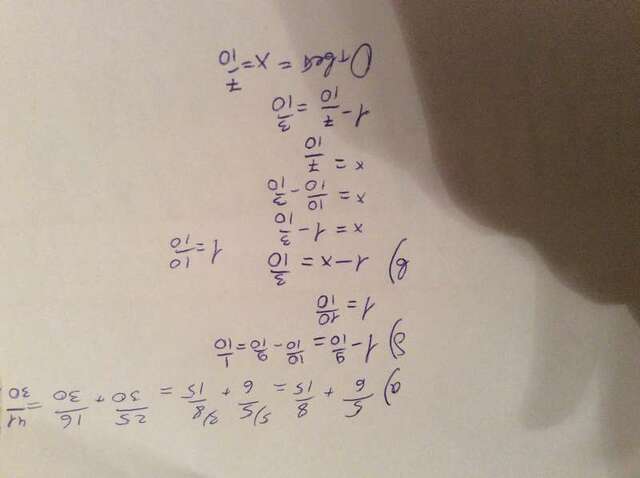 а) 5/6 + 8/15 = ⁵⁾5/6 + ²⁾8/15 = 25/30 + 16/30 = 41/30
б) 1 - 9/10 = 10/10 - 9/10 = 1/10
1 = 10/10
в) 1 - x = 3/10 1 = 10/10
x = 1 - 3/10
x = 10/10 - 3/10
x = 7/10
1 - 7/10 = 3/10
Ответ = x = 7/10